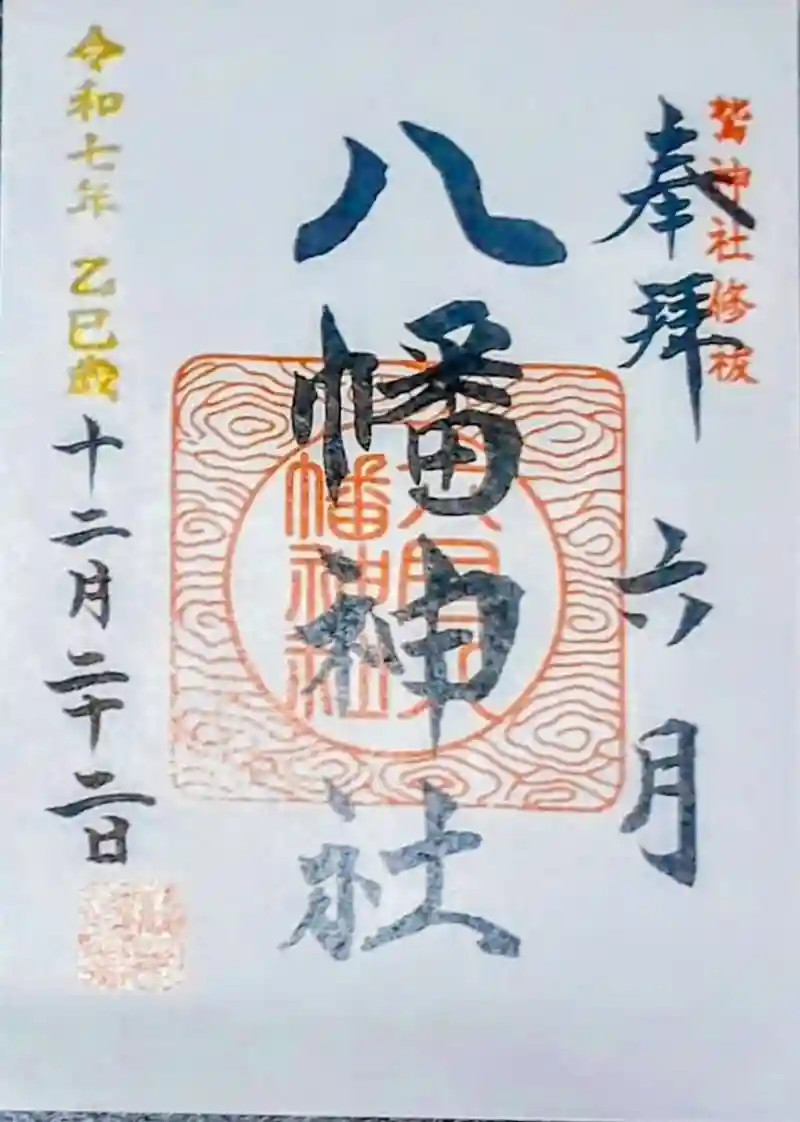 鷲神社修祓
奉拝 六月
八幡神社
六月八幡神社
令和七年 乙巳歳 十二月二十二日